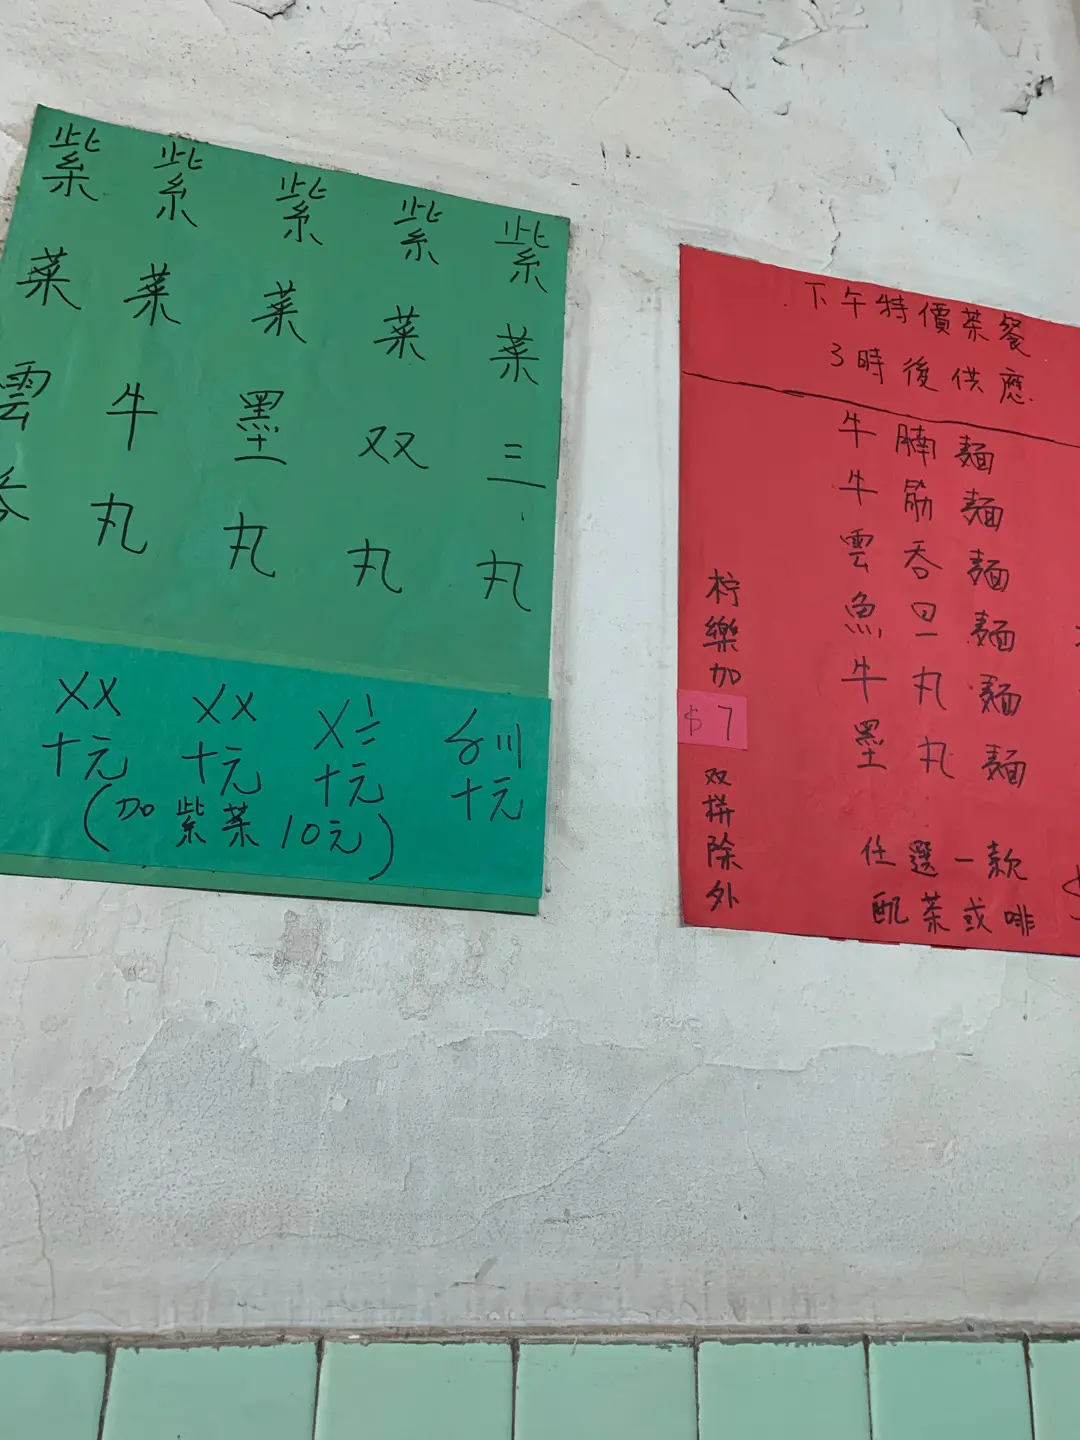 紫菜三丸
〥〣十元
紫菜双丸
〤〨十元
紫菜墨丸
〤〤十元
紫菜牛丸
〤〤十元
紫菜雲吞
(加紫菜10元)
下午特價茶餐
3時後供應
牛腩麵
牛筋麵
雲吞麵
魚旦麵
牛丸麵
墨丸麵
任選一款
配茶或啡
柠樂加
$7
双拼除外